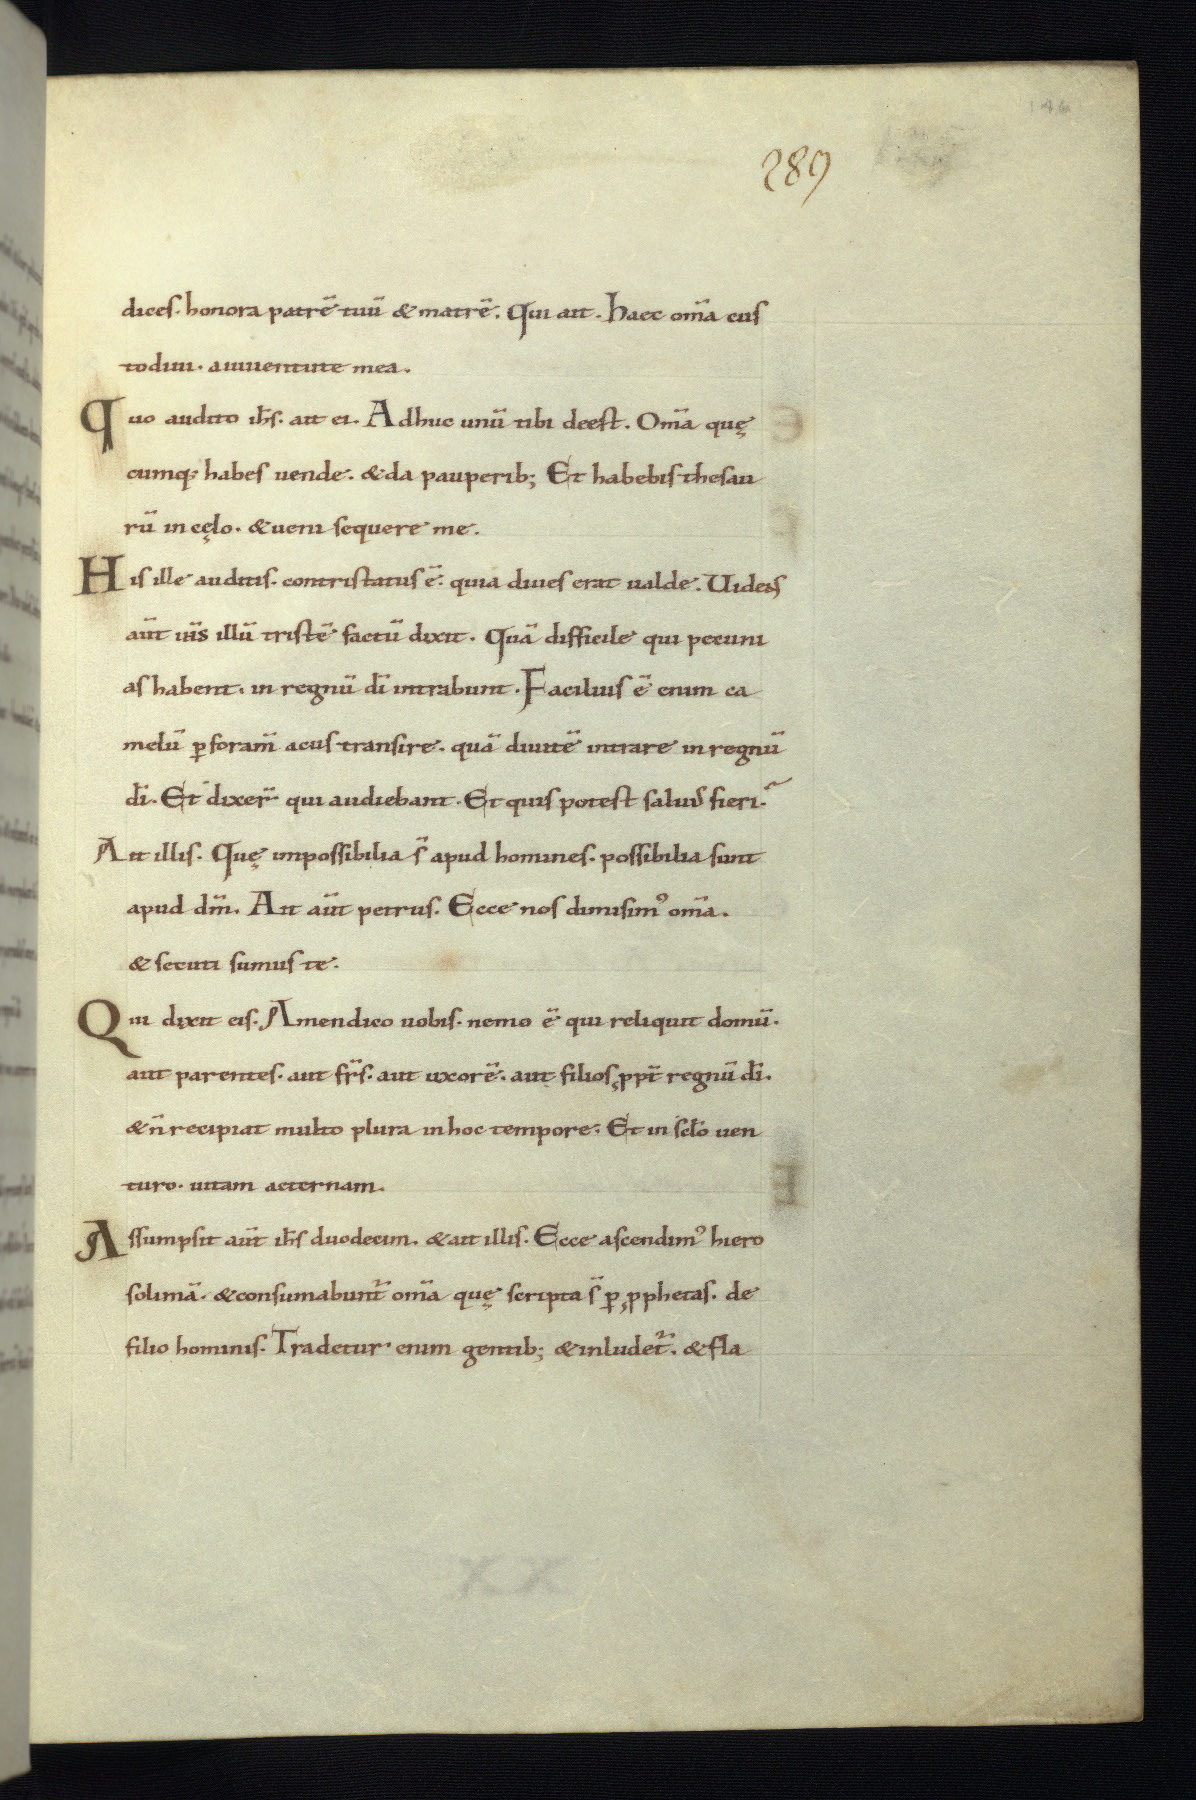 146
289
dices. honora patrē tuū & matrē. Qui ait. Haec om̄a cus
todiui. a iuuentute mea.
Quo audito ih̄s. ait ei. Adhuc unū tibi deest. Om̄a quę
cumq; habes uende. & da pauperib; Et habebis thesau
rū in cęlo. & ueni sequere me.
His ille auditis. contristatus ē. quia diues erat ualde. Uidens
aūt ih̄s illū tristē factū dixit. Quā difficile qui pecuni
as habent. in regnū dī intrabunt. Facilius ē enim ca
melū ꝑ foram̄ acus transire. quā diuitē intrare in regnū
dī. Et dixer̄ qui audiebant. Et quis potest saluus fieri.
Ait illis. Quę impossibilia s̄ apud homines. possibilia sunt
apud dm̄. Ait aūt petrus. Ecce nos dimisimꝰ om̄a.
& secuti sumus te.
Qui dixit eis. Amen dico uobis. nemo ē qui reliquit domū.
aut parentes. aut fr̄s. aut uxorē. aut filios ꝓpt̄ regnū dī.
& n̄ recipiat multo plura in hoc tempore. Et in sc̄lo uen
turo. uitam aeternam.
Assumpsit aūt ih̄s duodecim. & ait illis. Ecce ascendimꝰ hiero
solimā. & consumabunt̄ om̄a quę scripta s̄ ꝑ ꝓphetas. de
filio hominis. Tradetur enim gentib; & inludet̄. & fla